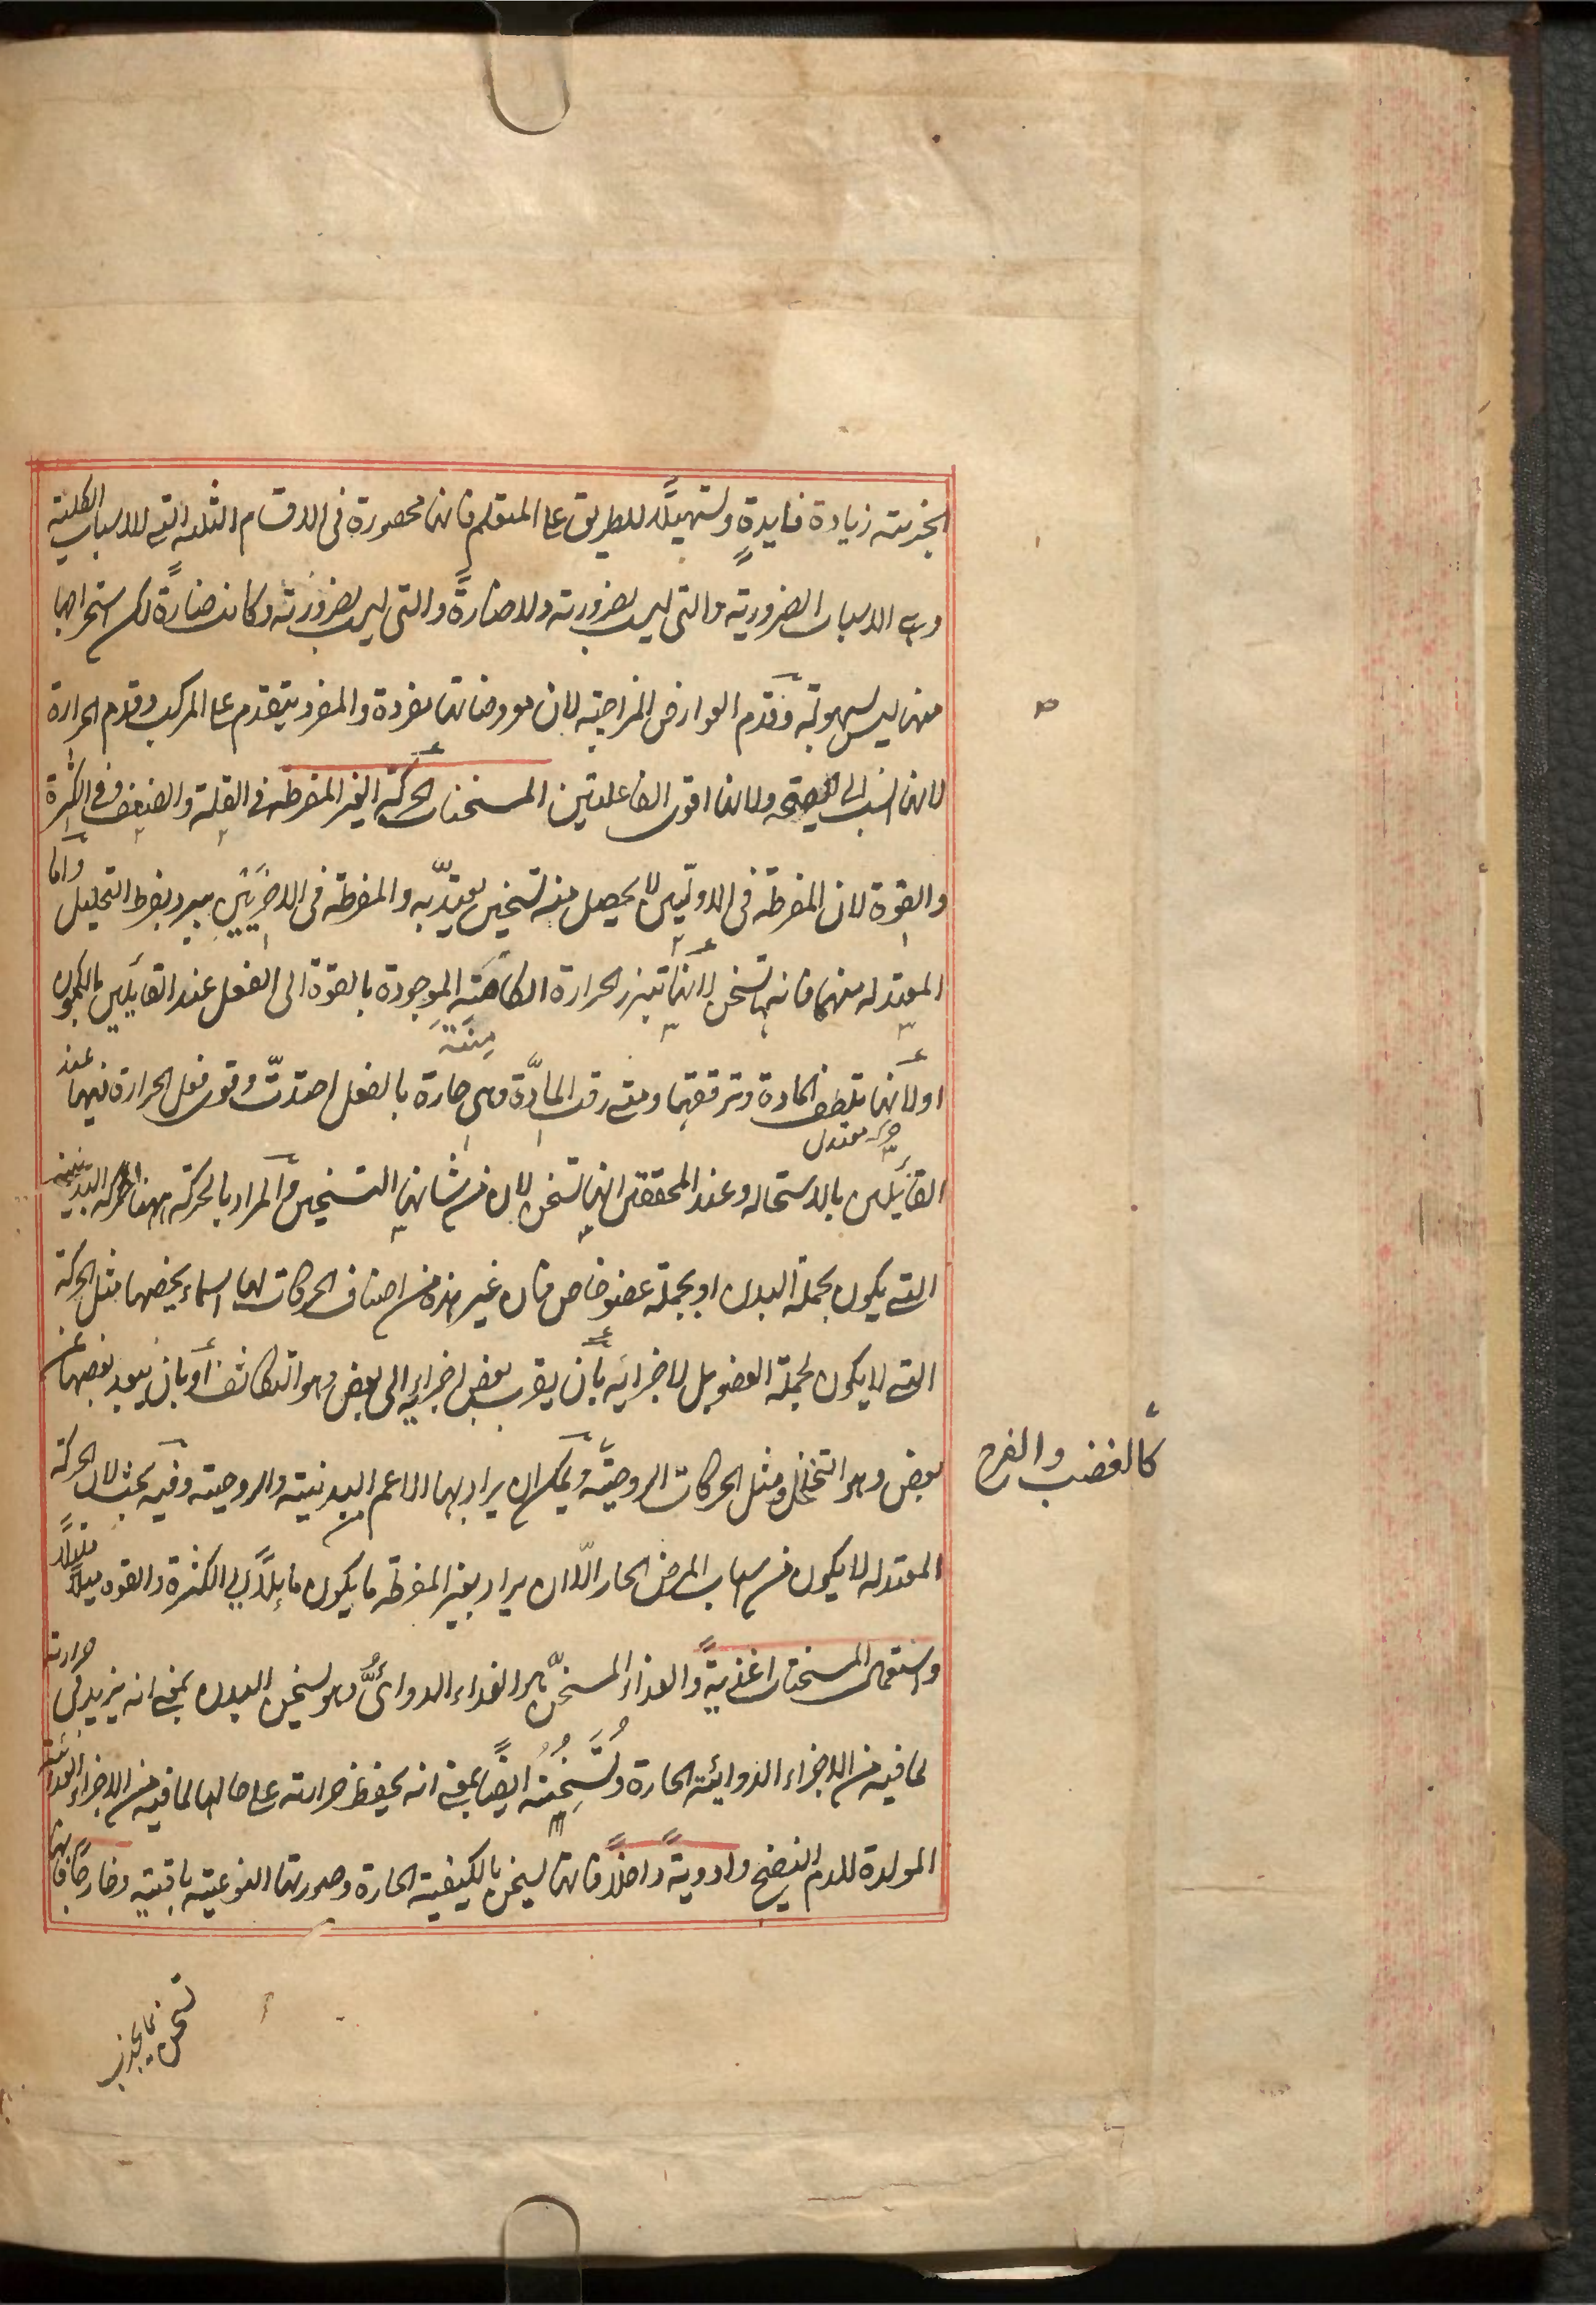 الجزئية زيادة فايدةٍ وتسهيلًا للطريق على المتعلم فانها محصورة فى الاقسام الثلثه التى للاسباب الكلية
وهى الاسباب الضرورية والتى ليس بضرورية ولا ضارةً والتى ليس بضرورية وكانت ضارةً لكن استخراجها
منها ليس بسهولة وقدم العوارض المزاجية لان معروضاتها مفردة والمفرد يتقدم على المركب وقدم الحرارة
لانها انسب الى الصحة ولانها اقوى الفاعلتين المسخنات الحركة الغير المفرطه فى القلة والضعف وفى الكثرة
والقوة لان المفرطة فى الاوليين لا يحصل منه تسخين يعتدّ به والمفرطة فى الاخريين يبرد بفرط التحليل واما
المعتدله منهما فانها تسخن لانها تبرز الحرارة الكامنة الموجودة بالقوة الى الفعل عند القائلين بالكمون
او لانها تلطف المادة وترققها ومتى رقت المادّة وهى حارة بالفعل احتدتّ وقوى فعل الحرارة فيها عند
حركة معتدل
القائلين بالاستحاله وعند المحققين انها تسخن لان من شانها التسخين والمراد بالحركة ههنا الحركه البدنية
التى يكون بجملة البدن او بجملة عضو خاص فان غير هذه من اصناف الحركات لها اسماء يخصها مثل الحركة
التى لا يكون لجملة العضو بل لاجزائه بأن يقرب بعض اجزايه الى بعض وهو التكاثف أو بان يبعد بعضها عن
بعض وهو التخلخل ومثل الحركات الروحيّة ويمكن ان يراد بها الاعم البدنية والروحية وفيه بحث لان الحركة
كالغضب والفرح
المعتدله لا يكون من اسباب المرض الحار الّا ان يراد بغير المفرطة ما يكون مايلًا الى الكثرة والقوه ميلًا قليلًا
واستعمال المسخنات اغذيةً والغذاء المسخنّ هو الغذاء الدوائىُّ وهو يسخن البدن بمعنى انه يزيد فى حرارته
لما فيه من الاجزاء الدوائية الحارة وتُسَخِّنُهُ ايضًا بمعنى انه يحفظ حرارته على حالها لما فيه من الاجزاء الغذائية
المولدة للدم النضيج وادويةً داخلًا فانها يسخن بالكيفية الحارة وصورتها النوعيّة باقية وخارجًا فانها
تسخن